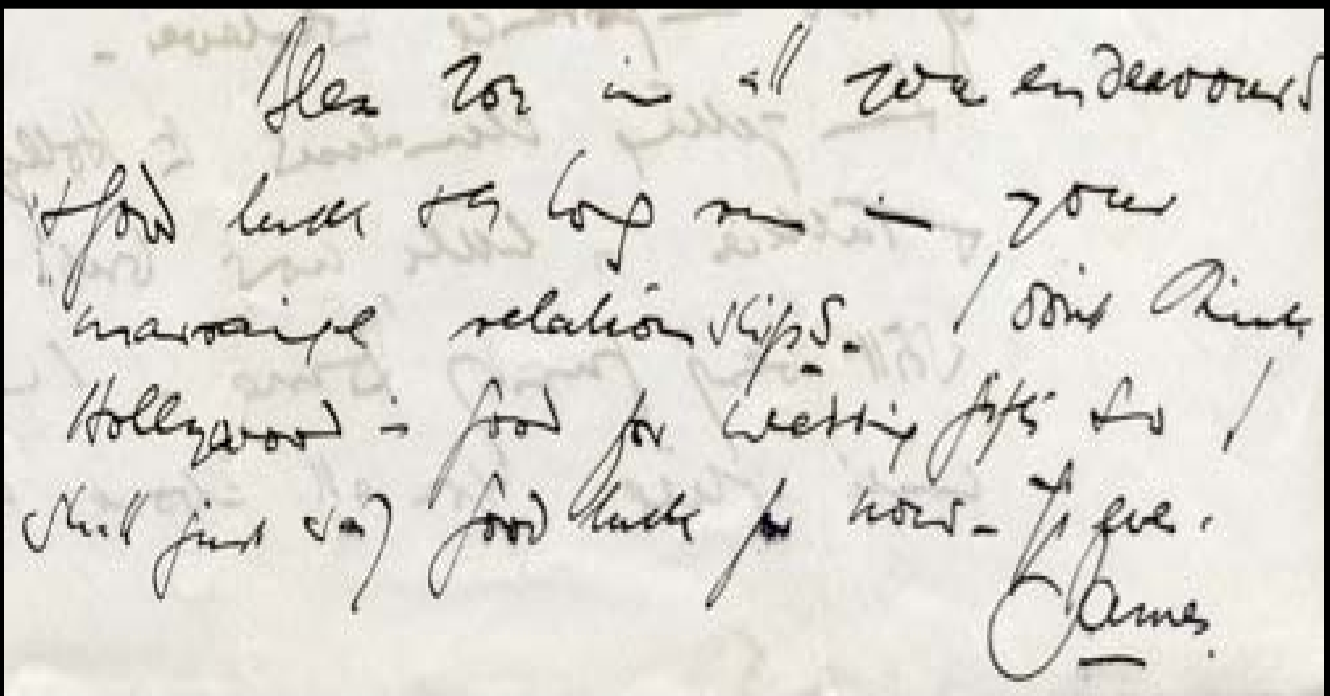 Bless you in all your endeavours
+ good luck + long run in your
marraige relationships. I don't think
Hollywood is good for wedding gifts so I
shall just say good luck for now -
James.